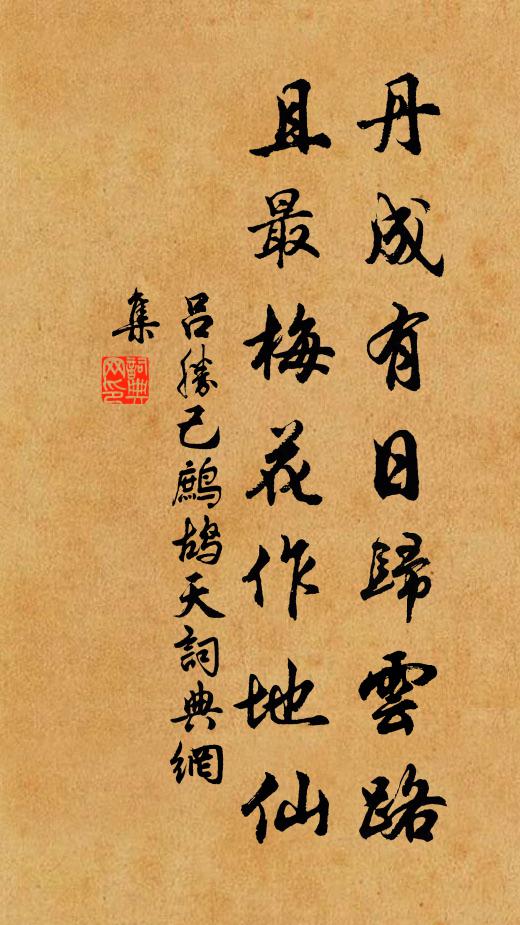 丹成有日歸雲路
且最梅花作地仙
吕勝己鷓鴣天詞典網
集
詞典
网印